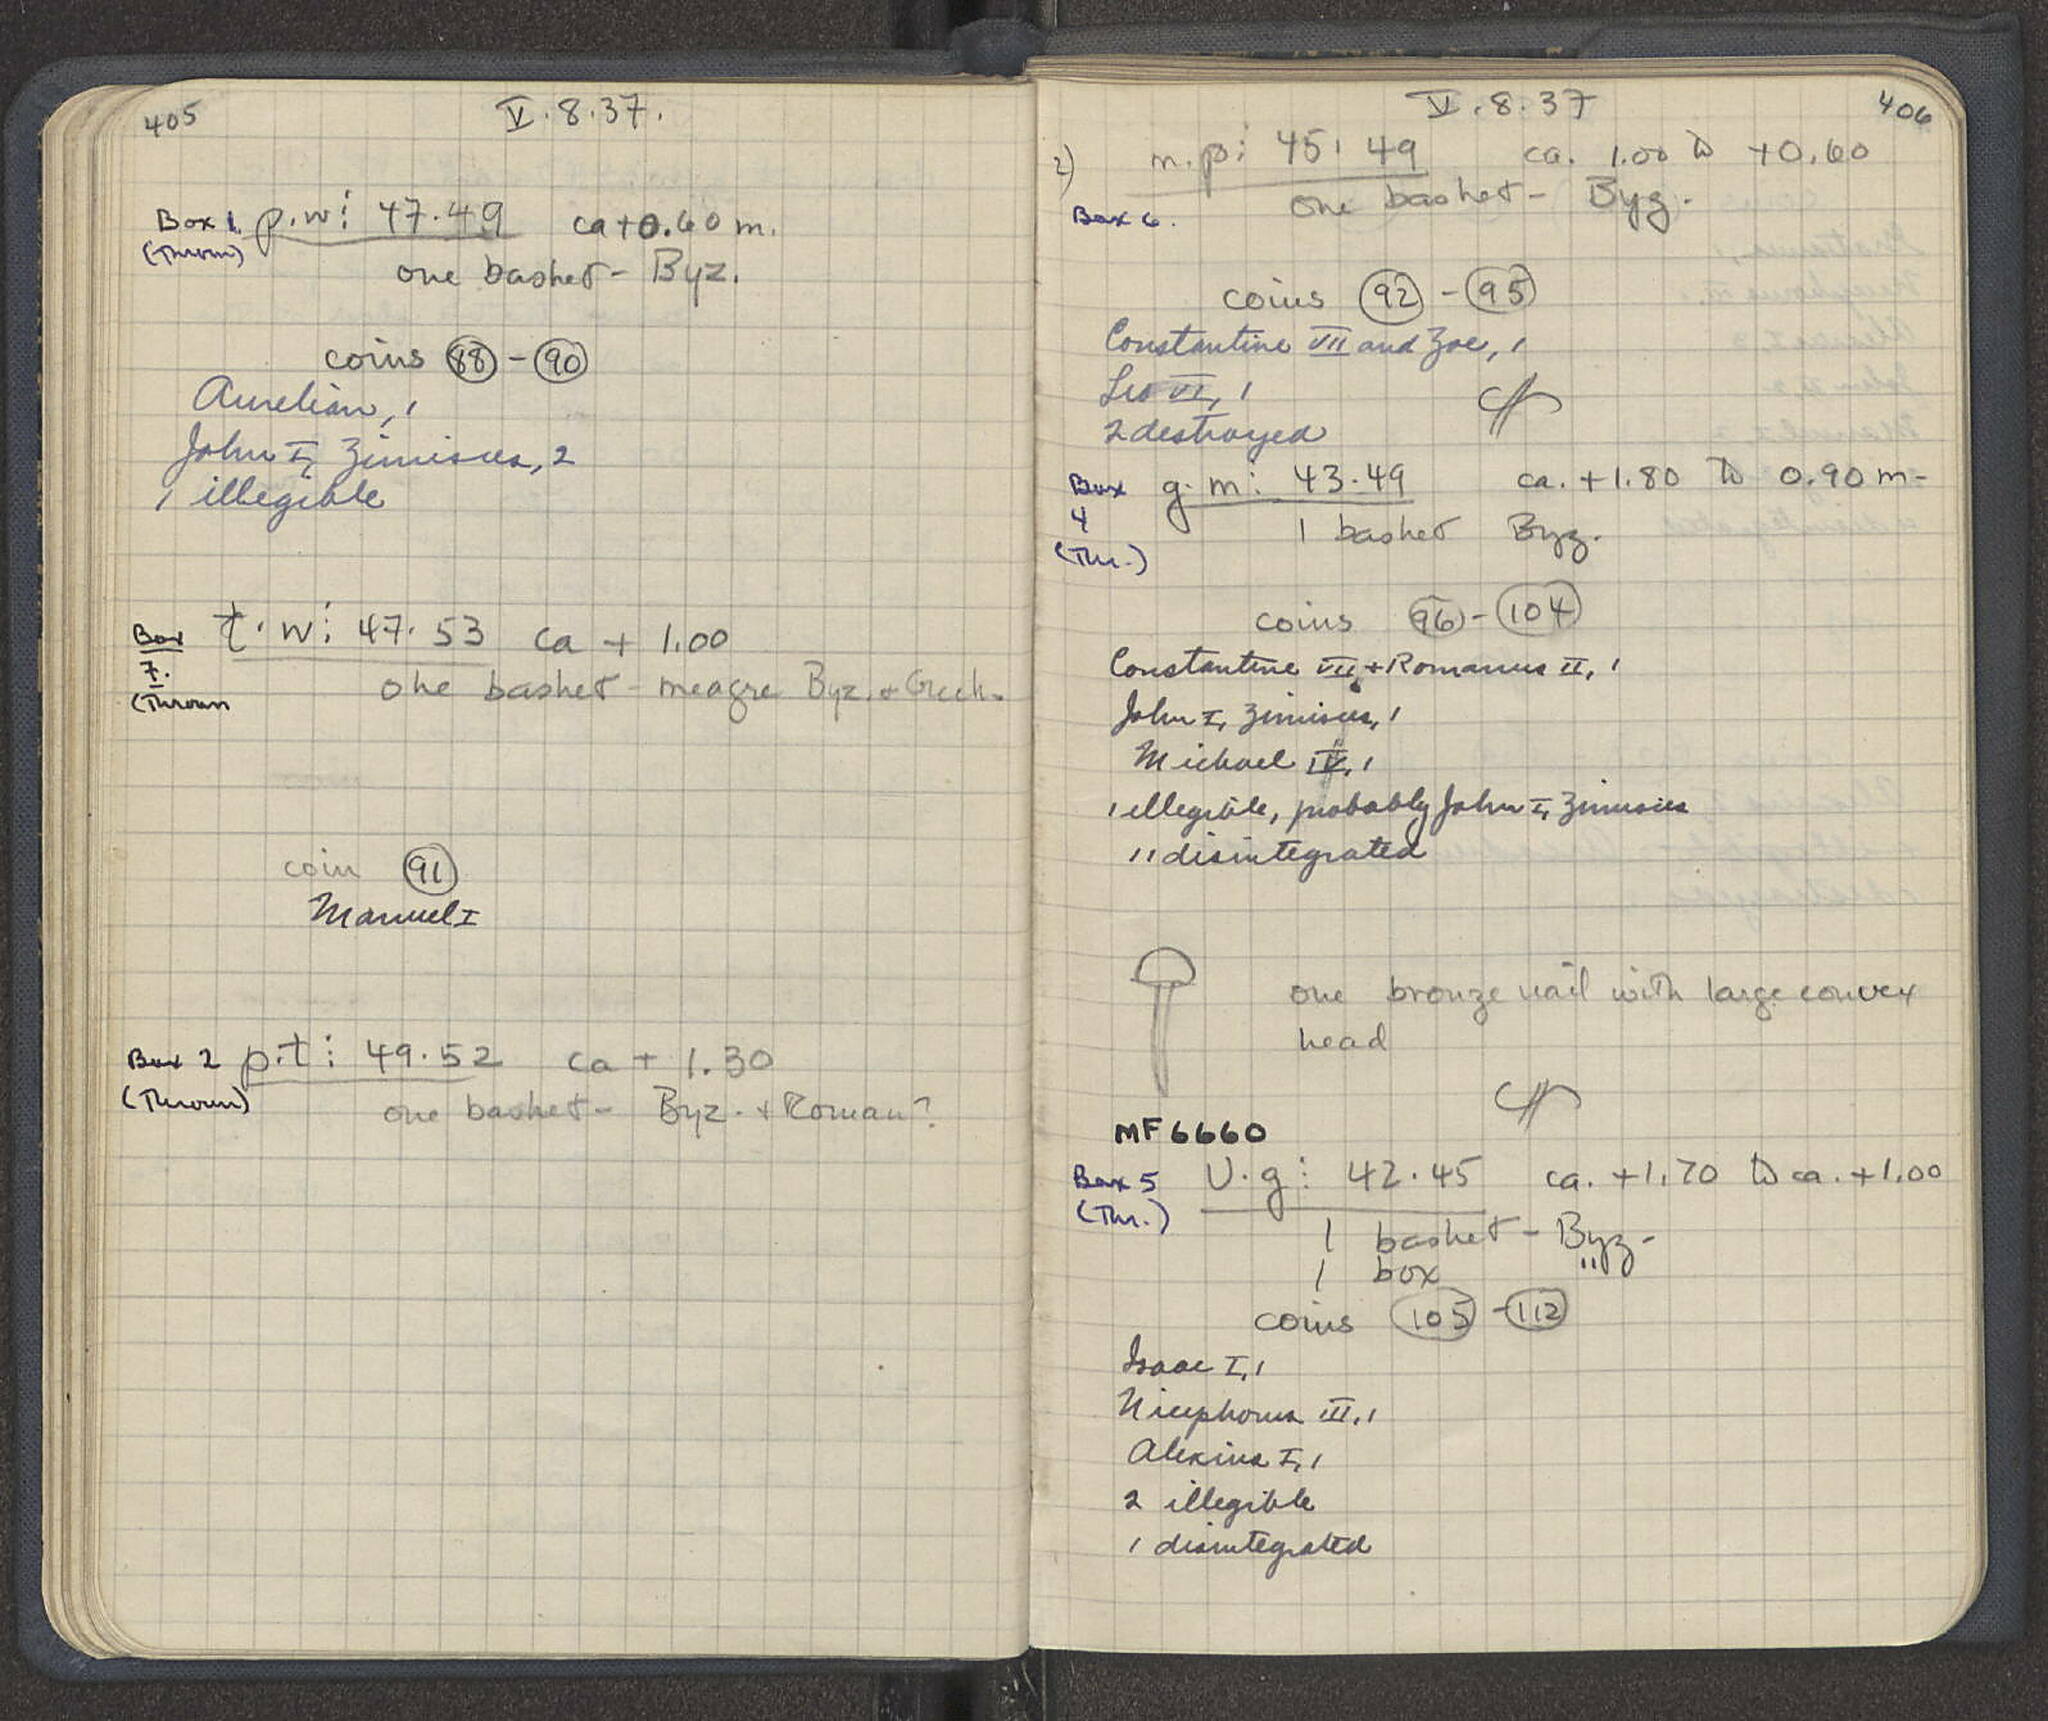 405
V.8.37.
Box 1. p.w: 47.49 ca +0.60 m.
(Thrown)
one basket - Byz.
coins 88 - 90
Aurelian, 1
John I, Zimisces, 2
1 illegible
Box 7. t.w: 47.53 ca + 1.00
(Thrown
one basket - meagre Byz. + Greek.
coin 91
Manuel I
Box 2 p.t: 49.52 ca + 1.30
(Thrown)
one basket - Byz. + Roman?
V.8.37
406
2) m.p: 45.49 ca. 1.00 to +0.60
Box 6. one basket - Byz.
coins 92 - 95
Constantine VII and Zoe, 1
Leo VI, 1
2 destroyed
Box 4 g.m: 43.49 ca. +1.80 to 0.90 m-
(Thr.) 1 basket Byz.
coins 96 - 104
Constantine VII + Romanus II, 1
John I, Zimisces, 1
Michael IV, 1
1 illegible, probably John I, Zimisces
11 disintegrated
one bronze nail with large convex
head
MF 6660
Box 5 U.g: 42.45 ca. +1.70 to ca. +1.00
(Thr.)
1 basket - Byz-
1 box "
coins 105 - 112
Isaac I, 1
Nicephorus III, 1
Alexius I, 1
2 illegible
1 disintegrated